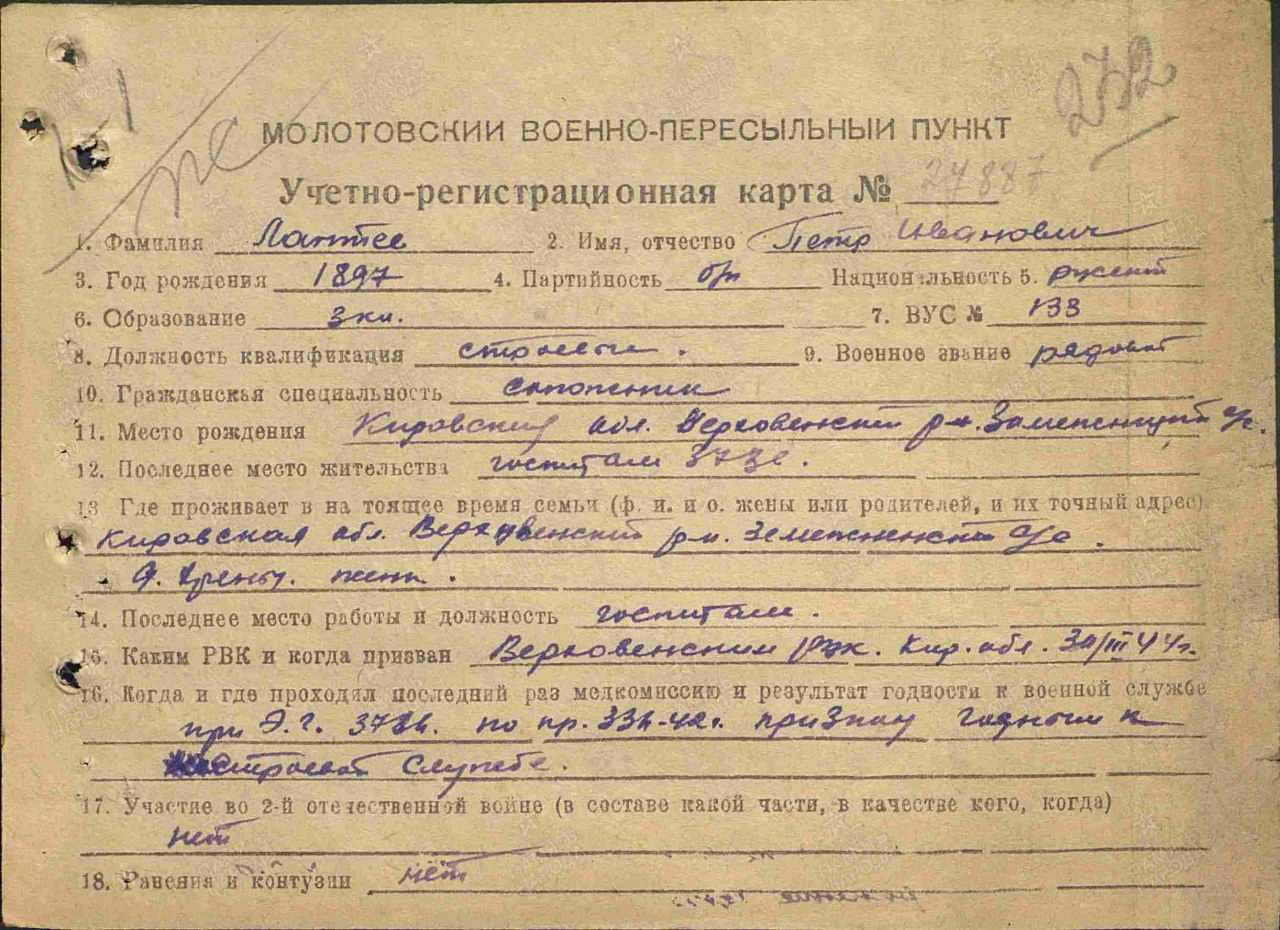 232
МОЛОТОВСКИЙ ВОЕННО-ПЕРЕСЫЛЬНЫЙ ПУНКТ
Учетно-регистрационная карта № 27887
1. Фамилия Лаптев 2. Имя, отчество Петр Иванович
3. Год рождения 1897 4. Партийность б/п Национальность 5. русский
6. Образование 3 кл. 7. ВУС № 133
8. Должность квалификация строевые. 9. Военное звание рядовой
10. Гражданская специальность сапожник
11. Место рождения Кировский обл. Верховенский р-н.
12. Последнее место жительства госпитам
13 Где проживает в на тоящее время семьи (ф. и. и о. жены или родителей, и их точный адрес)
Кировская обл. Верховенский р-н. с/с.
14. Последнее место работы и должность госпитам.
15. Каким РВК и когда призван Верховенским рвк. Кир. обл. 44г.
16. Когда и где проходил последний раз медкомиссию и результат годности к военной службе
при Э.Г. по пр. 336-42г. признан годным к
строевой службе.
17. Участие во 2-й отечественной войне (в составе какой части, в качестве кого, когда)
нет
18. Ранения и контузии нет